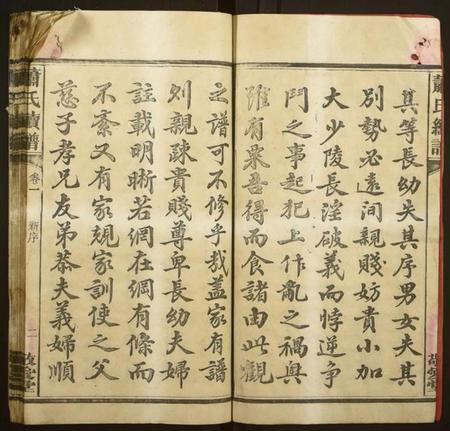 蕭氏續譜
其等長幼失其序男女失其
別勢必遠間親賤妨貴小加
大少陵長淫破義而悖逆爭
鬥之事起犯上作亂之禍興
雖有粟吾得而食諸由此觀
之譜可不修乎哉蓋家有譜
列親疎貴賤尊卑長幼夫婦
註載明晰若網在綱有條而
不紊又有家規家訓使之父
慈子孝兄友弟恭夫義婦順
蕭氏續譜
卷一
新序
二